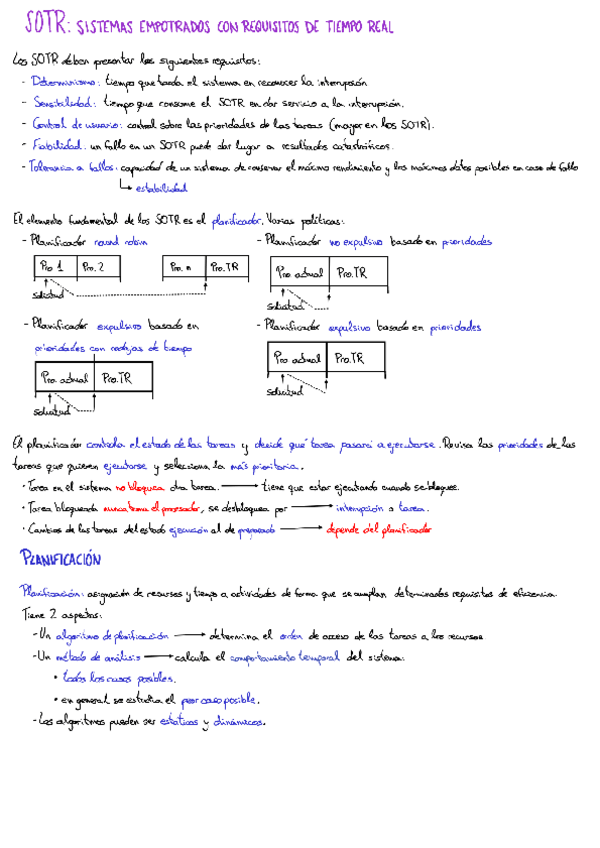 SOTR: SISTEMAS EMPOTRADOS CON REQUISITOS DE TIEMPO REAL
Los SOTR deben presentar los siguientes requisitos:
- Determinismo: tiempo que tarda el sistema en reconocer la interrupción
- Sensibilidad: tiempo que consume el SOTR en dar servicio a la interrupción.
- Control de usuario: control sobre las prioridades de las tareas (mayor en los SOTR).
- Fiabilidad: un fallo en un SOTR puede dar lugar a resultados catastróficos.
- Tolerancia a fallos: capacidad de un sistema de conservar el máximo rendimiento y los máximos datos posibles en caso de fallo
estabilidad
El elemento fundamental de los SOTR es el planificador. Varias políticas:
- Planificador round robin
- Planificador no expulsivo basado en prioridades
Pro 1 Pro. 2 Pro. n Pro. TR
Pro actual Pro. TR
solicitud
solicitud
- Planificador expulsivo basado en
- Planificador expulsivo basado en prioridades
prioridades con rodajas de tiempo
Pro actual Pro. TR
Pro actual Pro. TR
solicitud
solicitud
El planificador controla el estado de las tareas y decide qué tarea pasará a ejecutarse. Revisa las prioridades de las
tareas que quieren ejecutarse y selecciona la más prioritaria.
· Tarea en el sistema no bloquea otra tarea. → tiene que estar ejecutando cuando se bloquee.
· Tarea bloqueada nunca toma el procesador, se desbloquea por → interrupción o tarea.
· Cambios de las tareas del estado ejecución al de preparado → depende del planificador
PLANIFICACIÓN
Planificación: asignación de recursos y tiempo a actividades de forma que se cumplan determinados requisitos de eficiencia.
Tiene 2 aspectos:
- Un algoritmo de planificación → determina el orden de acceso de las tareas a los recursos
- Un método de análisis → calcula el comportamiento temporal del sistema:
• todos los casos posibles.
• en general se estudia el peor caso posible.
- Los algoritmos pueden ser estáticos y dinámicos.